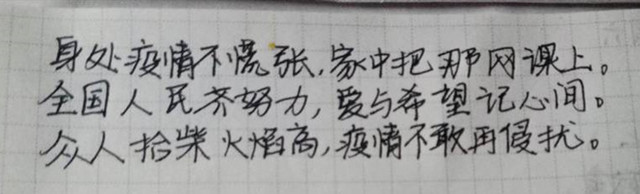 身处疫情不慌张,家中把那网课上。
全国人民齐努力,爱与希望记心间。
众人拾柴火焰高,疫情不敢再侵扰。